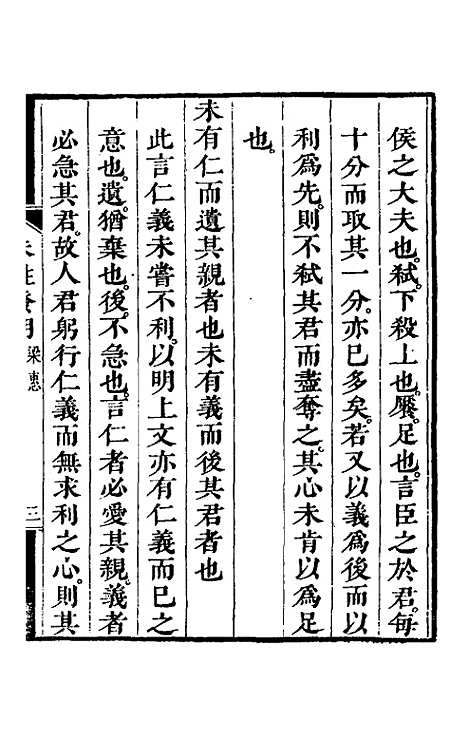 侯之大夫也。弑。下殺上也。厭。足也。言臣之於君。每
十分而取其一分。亦已多矣。若又以義爲後而以
利爲先。則不弑其君而盡奪之。其心未肯以爲足
也。
未有仁而遺其親者也未有義而後其君者也
此言仁義未嘗不利。以明上文亦有仁義而已之
意也。遺。猶棄也。後。不急也。言仁者必愛其親。義者
必急其君。故人君躬行仁義而無求利之心。則其
梁惠
三